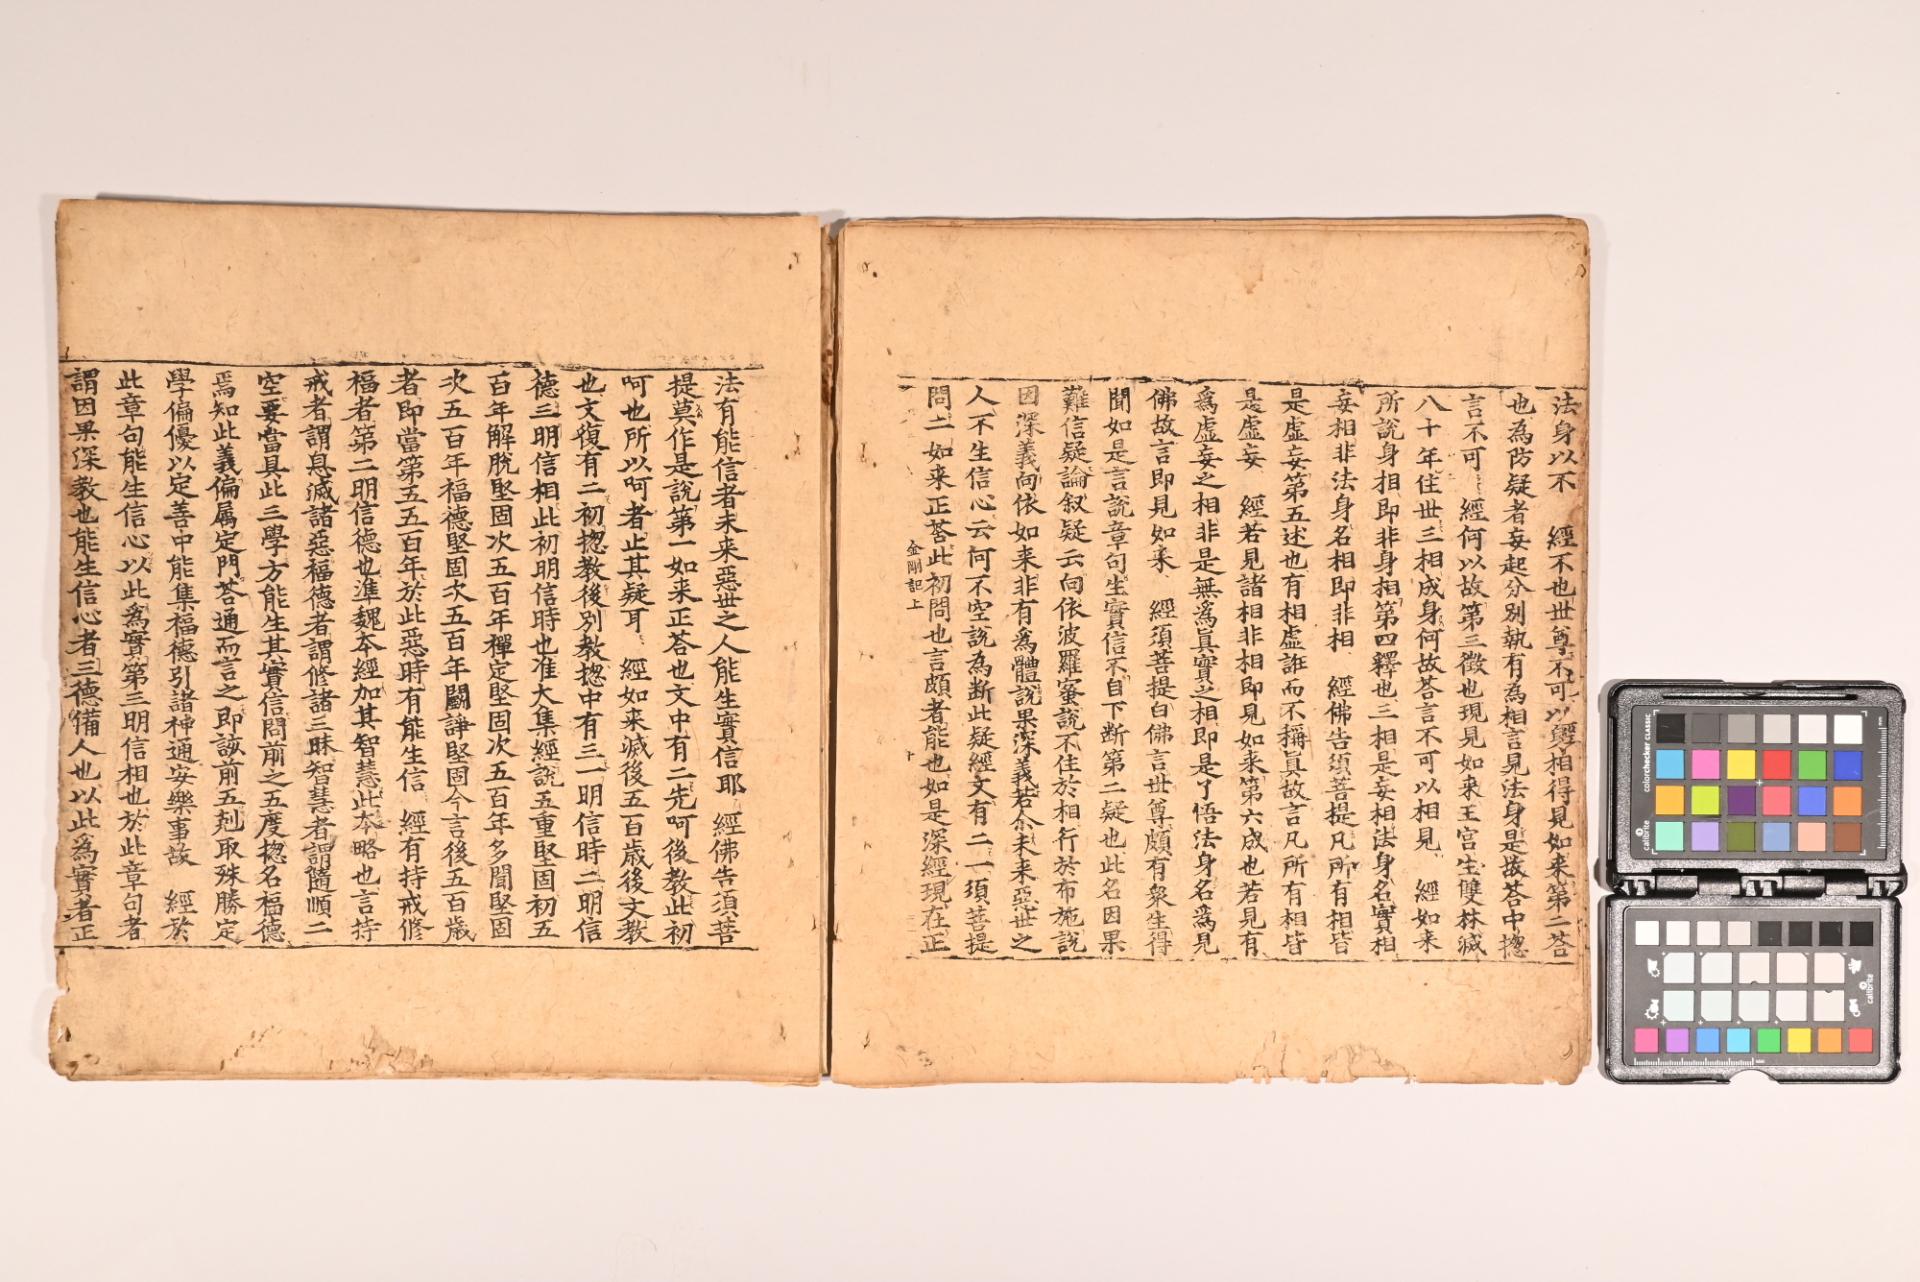 法身以不　經不也世尊不可以身相得見如来第二荅
也為防疑者妄起分別執有為相言見法身是故荅中揔
言不可　經何以故第三徵也現見如来王宮生雙林滅
八十年住世三相成身何故荅言不可以相見　經如来
所說身相即非身相第四釋也三相是妄相法身名實相
妄相非法身名相即非相　經佛告須菩提凡所有相皆
是虛妄第五述也有相虛誑而不稱真故言凡所有相皆
是虛妄　經若見諸相非相即見如来第六成也若見有
爲虛妄之相非是無爲眞實之相即是了悟法身名爲見
佛故言即見如来　經須菩提白佛言世尊頗有衆生得
聞如是言說章句生實信不自下斷第二疑也此名因果
難信疑論叙疑云向依波羅蜜說不住於相行於布施說
因深義向依如来非有爲體說果深義若尒未来惡世之
人不生信心云何不空說為断此疑經文有二一須菩提
問二如来正荅此初問也言頗者能也如是深經現在正
金剛記上
十
法有能信者未来惡世之人能生實信耶　經佛告須菩
提莫作是說第一如来正荅也文中有二先呵後教此初
呵也所以呵者止其疑耳　經如来滅後五百歳後文教
也文復有二初揔教後別教揔中有三一明信時二明信
德三明信相此初明信時也准大集經說五重堅固初五
百年解脫堅固次五百年禪定堅固次五百年多聞堅固
次五百年福德堅固次五百年闘諍堅固今言後五百歳
者即當第五五百年於此惡時有能生信　經有持戒修
福者第二明信德也準魏本經加其智慧此本略也言持
戒者謂息滅諸惡福德者謂修諸三昧智慧者謂隨順二
空要當具此三學方能生其實信問前之五度揔名福德
焉知此義偏属定門荅通而言之即該前五剋取殊勝定
學偏優以定善中能集福德引諸神通安樂事故　經於
此章句能生信心以此爲實第三明信相也於此章句者
謂因果深教也能生信心者三德備人也以此爲實者正